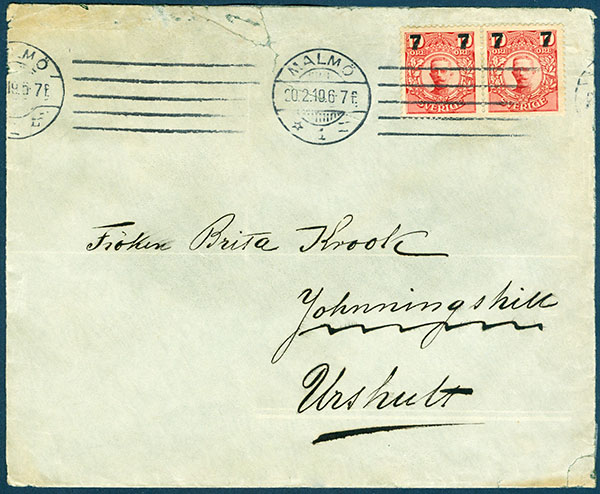 7 7 7 7
ÖRE ÖRE ÖRE ÖRE
SVERIGE SVERIGE
MALMÖ MALMÖ
19.6-7 E 20.2.19.6-7 E
1
Fröken Brita Krook
Johnningshill
Urshult